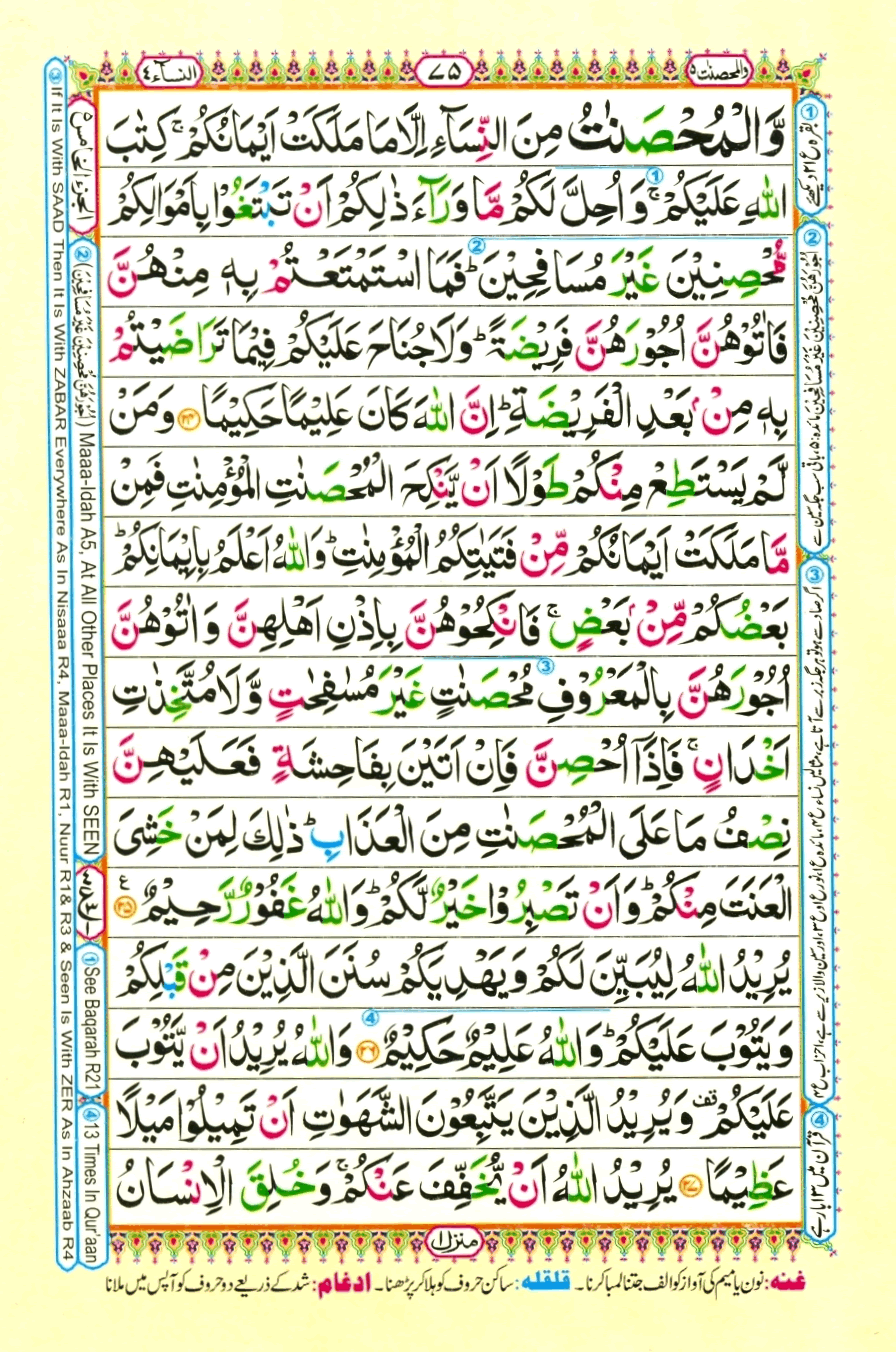 والمحصنٰت ۵
۷۵
النسآء ۴
وَّالْمُحْصَنٰتُ مِنَ النِّسَآءِ اِلَّا مَا مَلَكَتْ اَيْمَانُكُمْ ۚ كِتٰبَ
اللّٰهِ عَلَيْكُمْ ۚ وَ اُحِلَّ لَكُمْ مَّا وَرَآءَ ذٰلِكُمْ اَنْ تَبْتَغُوْا بِاَمْوَالِكُمْ
مُّحْصِنِيْنَ غَيْرَ مُسَافِحِيْنَ ؕ فَمَا اسْتَمْتَعْتُمْ بِهٖ مِنْهُنَّ
فَاٰتُوْهُنَّ اُجُوْرَهُنَّ فَرِيْضَةً ؕ وَلَا جُنَاحَ عَلَيْكُمْ فِيْمَا تَرَاضَيْتُمْ
بِهٖ مِنْۢ بَعْدِ الْفَرِيْضَةِ ؕ اِنَّ اللّٰهَ كَانَ عَلِيْمًا حَكِيْمًا ۲۴ وَمَنْ
لَّمْ يَسْتَطِعْ مِنْكُمْ طَوْلًا اَنْ يَّنْكِحَ الْمُحْصَنٰتِ الْمُؤْمِنٰتِ فَمِنْ
مَّا مَلَكَتْ اَيْمَانُكُمْ مِّنْ فَتَيٰتِكُمُ الْمُؤْمِنٰتِ ؕ وَاللّٰهُ اَعْلَمُ بِاِيْمَانِكُمْ ؕ
بَعْضُكُمْ مِّنْۢ بَعْضٍ ۚ فَانْكِحُوْهُنَّ بِاِذْنِ اَهْلِهِنَّ وَ اٰتُوْهُنَّ
اُجُوْرَهُنَّ بِالْمَعْرُوْفِ مُحْصَنٰتٍ غَيْرَ مُسٰفِحٰتٍ وَّلَا مُتَّخِذٰتِ
اَخْدَانٍ ۚ فَاِذَاۤ اُحْصِنَّ فَاِنْ اَتَيْنَ بِفَاحِشَةٍ فَعَلَيْهِنَّ
نِصْفُ مَا عَلَى الْمُحْصَنٰتِ مِنَ الْعَذَابِ ؕ ذٰلِكَ لِمَنْ خَشِيَ
الْعَنَتَ مِنْكُمْ ؕ وَاَنْ تَصْبِرُوْا خَيْرٌ لَّكُمْ ؕ وَاللّٰهُ غَفُوْرٌ رَّحِيْمٌ ۲۵ ع
يُرِيْدُ اللّٰهُ لِيُبَيِّنَ لَكُمْ وَ يَهْدِيَكُمْ سُنَنَ الَّذِيْنَ مِنْ قَبْلِكُمْ
وَ يَتُوْبَ عَلَيْكُمْ ؕ وَاللّٰهُ عَلِيْمٌ حَكِيْمٌ ۲۶ وَاللّٰهُ يُرِيْدُ اَنْ يَّتُوْبَ
عَلَيْكُمْ ۫ وَ يُرِيْدُ الَّذِيْنَ يَتَّبِعُوْنَ الشَّهَوٰتِ اَنْ تَمِيْلُوْا مَيْلًا
عَظِيْمًا ۲۷ يُرِيْدُ اللّٰهُ اَنْ يُّخَفِّفَ عَنْكُمْ ۚ وَخُلِقَ الْاِنْسَانُ
منزل ۱
غنہ: نون یا میم کی آواز کو الف جتنا لمبا کرنا۔ قلقلہ: ساکن حروف کو ہلا کر پڑھنا۔ ادغام: شد کے ذریعے دو حروف کو آپس میں ملانا
الجزء الخامس ۵
① See Baqarah R21
② (اُجُوْرَهُنَّ مُحْصِنِيْنَ غَيْرَ مُسَافِحِيْنَ) Maaa-Idah A5, At All Other Places It Is With SEEN
③ If It Is With SAAD Then It Is With ZABAR Everywhere As In Nisaaa R4, Maaa-Idah R1, Nuur R1& R3 & Seen Is With ZER As In Ahzaab R4
④ 13 Times In Qur'aan
① بقرہ ع ۲۱ دیکھیے
④ قرآن میں ۱۳ بار ہے